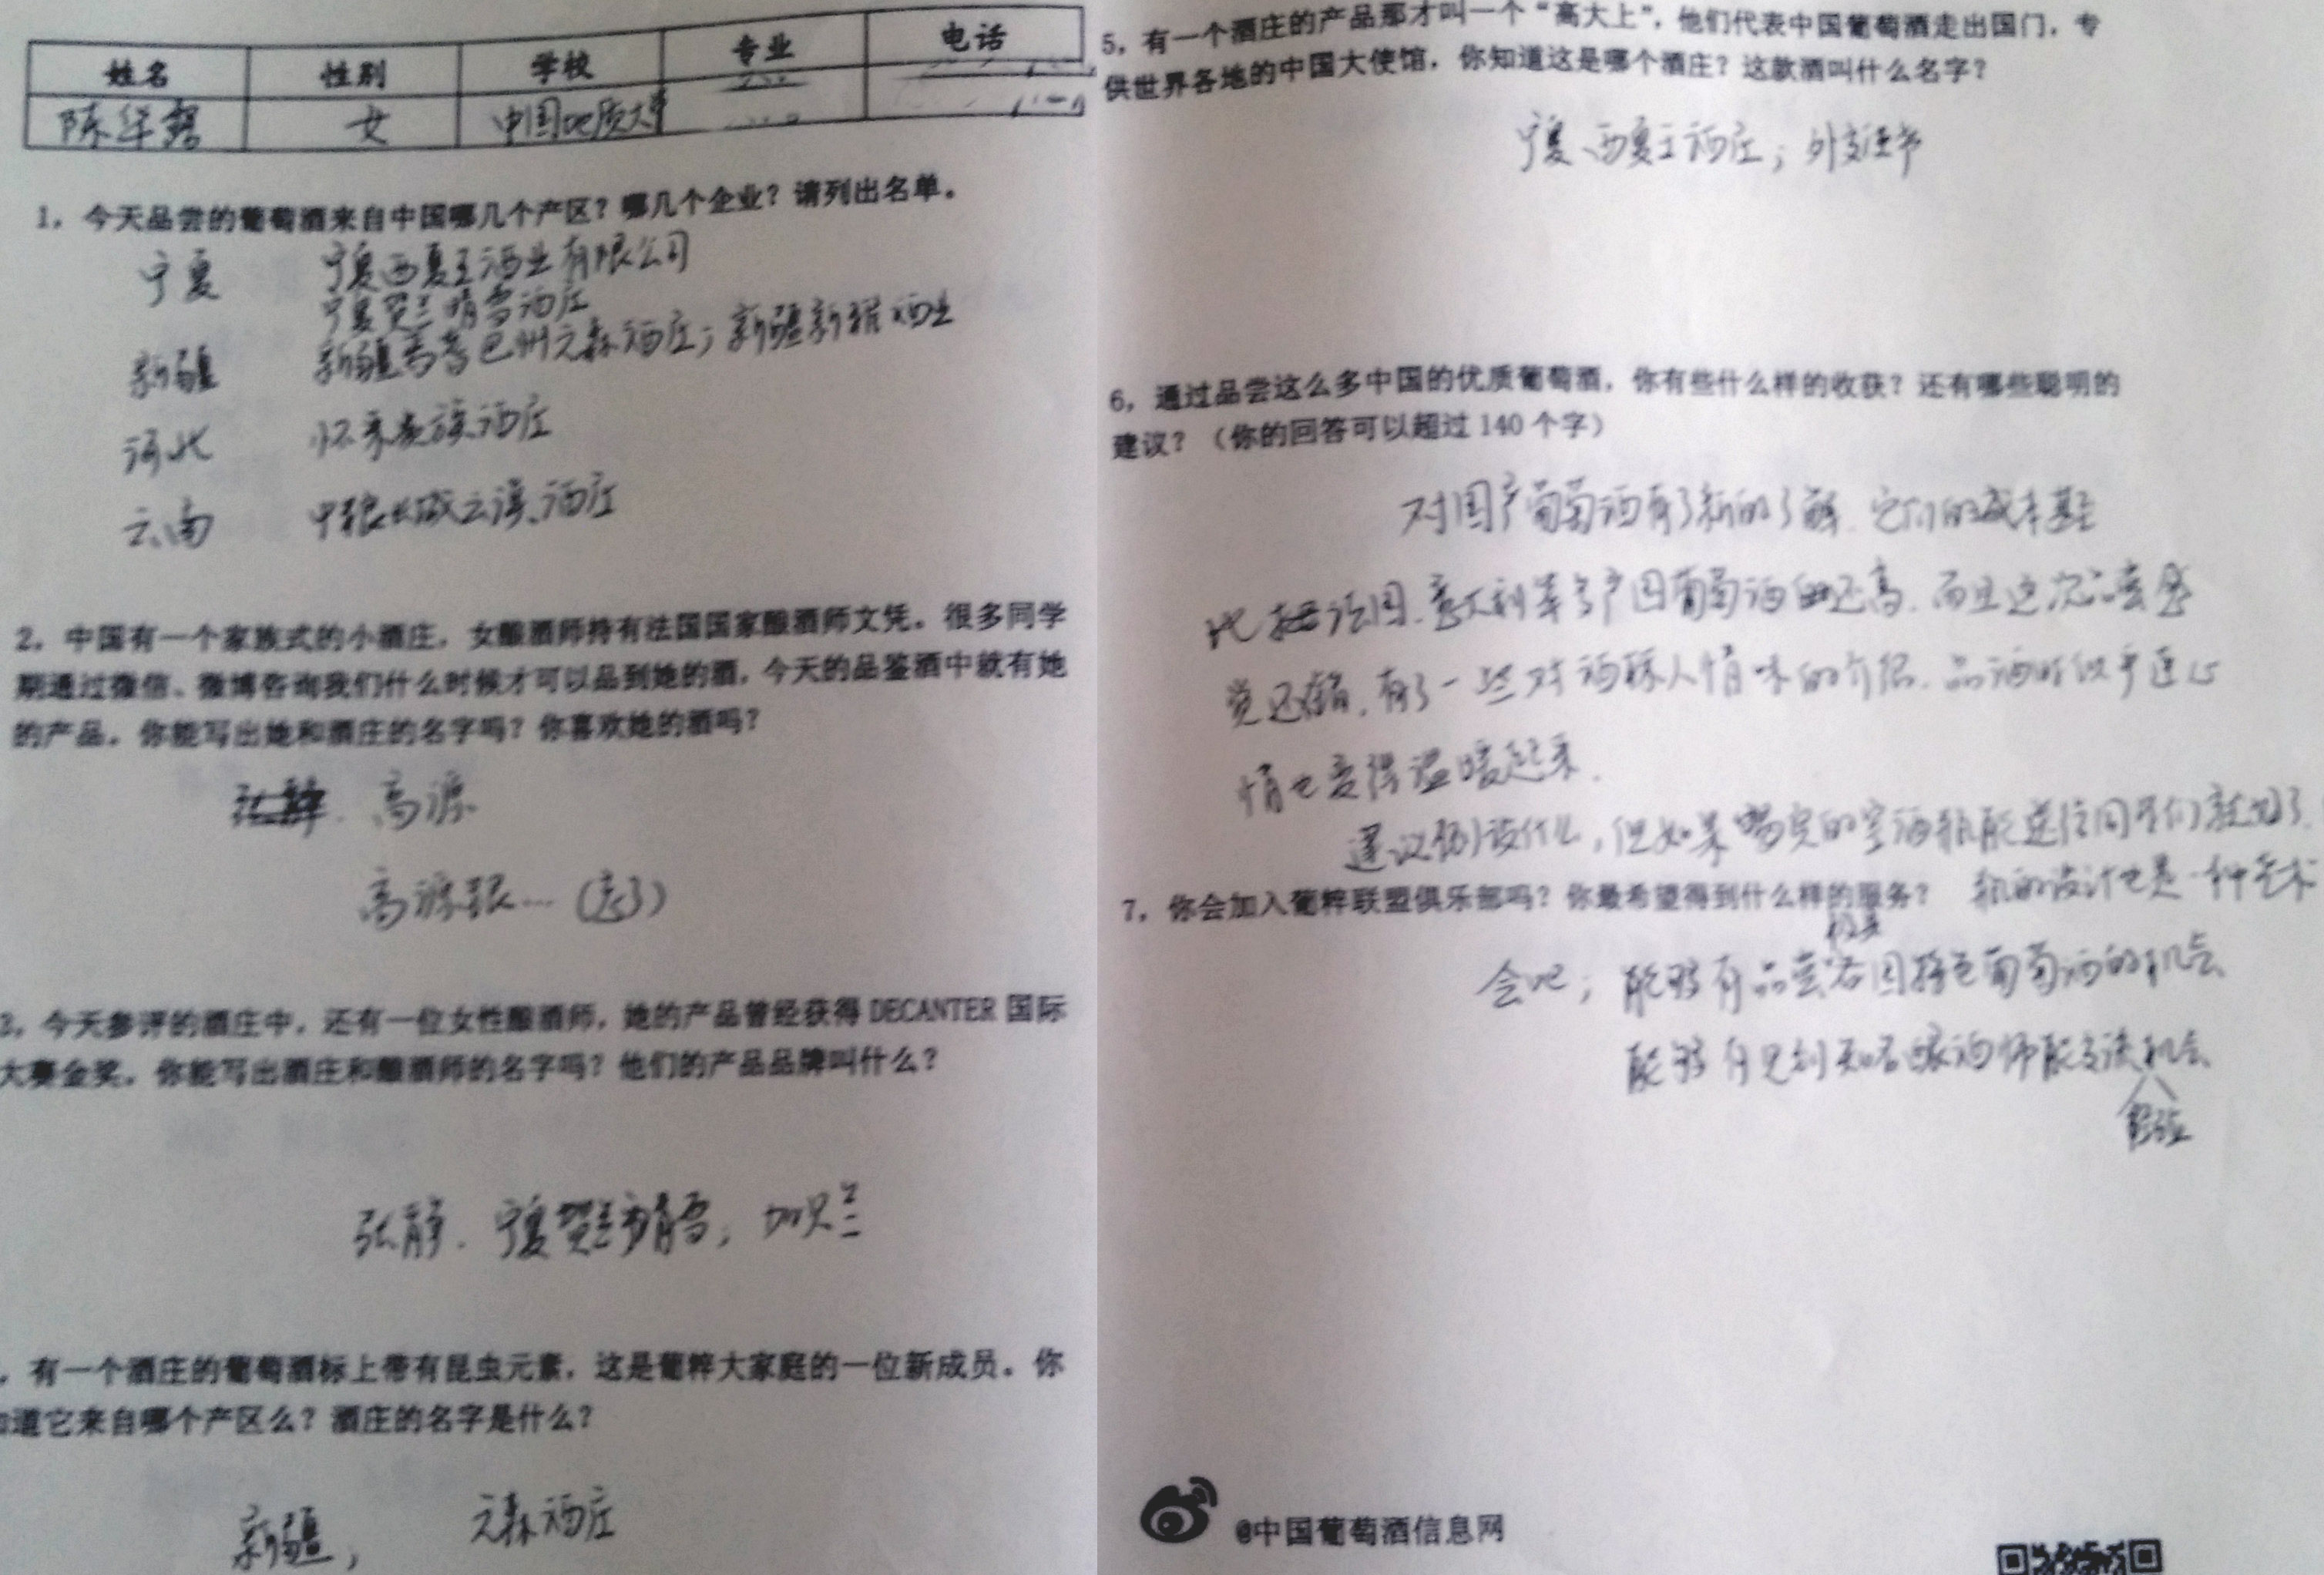 姓名 性别 学校 专业 电话
女 中国地质大学
1，今天品尝的葡萄酒来自中国哪几个产区？哪几个企业？请列出名单。
宁夏 宁夏西夏王酒业有限公司
宁夏贺兰晴雪酒庄
新疆 新疆 巴州元森酒庄；新疆新雅酒业
河北 怀来 族酒庄
云南 中粮长城云漠酒庄
2，中国有一个家族式的小酒庄，女酿酒师持有法国国家酿酒师文凭。很多同学
期通过微信、微博咨询我们什么时候才可以品到她的酒，今天的品鉴酒中就有她
的产品，你能写出她和酒庄的名字吗？你喜欢她的酒吗？
高源
高源 …（忘了）
3，今天参评的酒庄中，还有一位女性酿酒师，她的产品曾经获得 DECANTER 国际
大赛金奖，你能写出酒庄和酿酒师的名字吗？他们的产品品牌叫什么？
张静. 宁夏贺兰晴雪，加贝兰
，有一个酒庄的葡萄酒标上带有昆虫元素，这是葡粹大家庭的一位新成员。你
知道它来自哪个产区么？酒庄的名字是什么？
新疆， 元森酒庄
5，有一个酒庄的产品那才叫一个“高大上”，他们代表中国葡萄酒走出国门，专
供世界各地的中国大使馆，你知道这是哪个酒庄？这款酒叫什么名字？
宁夏、西夏王酒庄；外交使节
6，通过品尝这么多中国的优质葡萄酒，你有些什么样的收获？还有哪些聪明的
建议？（你的回答可以超过 140 个字）
对国产葡萄酒有了新的了解，它们的成本甚至
比 法国、意大利等 产国葡萄酒 还高，而且这次品尝感
觉还 ，有了一些对酒 人情味的介绍，品酒时似乎连心
情也变得温暖起来.
建议 没什么，但如果喝完的空酒瓶能送给同学们就好了
瓶的设计也是一种艺术
7，你会加入葡粹联盟俱乐部吗？你最希望得到什么样的服务？
会吧；能够有品尝各国特色葡萄酒的机会
能够有见到知名酿酒师 交谈机会
@中国葡萄酒信息网